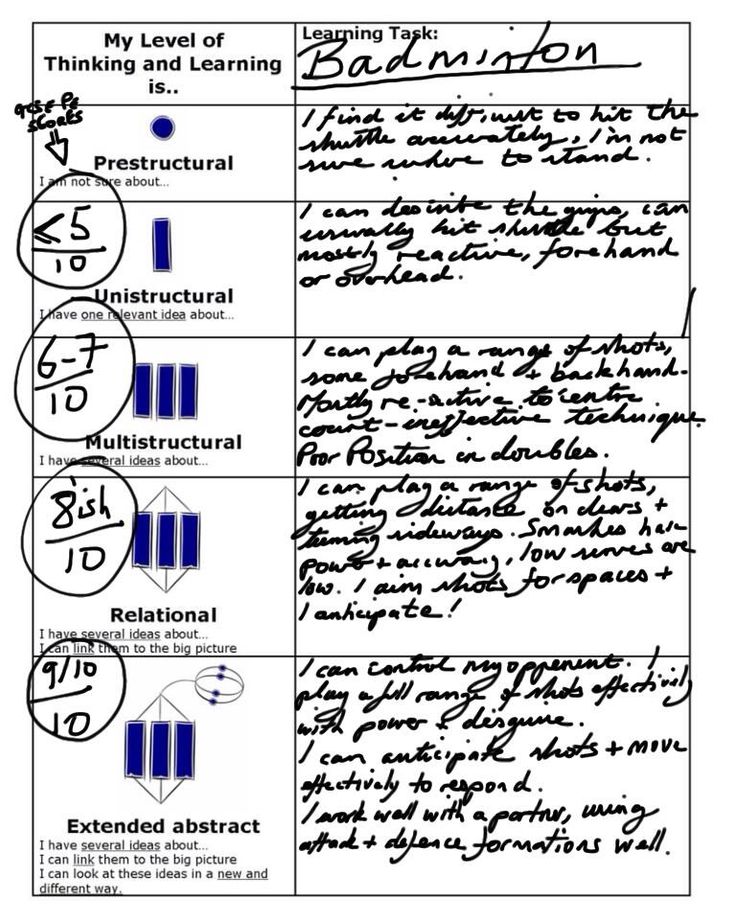 My Level of
Thinking and Learning
is..
Learning Task:
Badminton
GCSE PE
scores
Prestructural
I am not sure about...
I find it difficult to hit the
shuttle accurately, I'm not
sure where to stand.
≤5
10
Unistructural
I have one relevant idea about...
I can describe the grips, can
usually hit shuttle but
mostly reactive, forehand
or overhead.
6-7
10
Multistructural
I have several ideas about...
I can play a range of shots,
some forehand + backhand.
Mostly re-active to centre
court - ineffective technique
Poor Position in doubles.
8ish
10
Relational
I have several ideas about...
I can link them to the big picture
I can play a range of shots,
getting distance on clears +
turning sideways. Smashes have
power + accuracy, low serves are
low. I aim shots for spaces +
I anticipate!
9/10
10
Extended abstract
I have several ideas about...
I can link them to the big picture
I can look at these ideas in a new and
different way.
I can control my opponent. I
play a full range of shots effectively
with power + disguise.
I can anticipate shots + move
effectively to respond.
I work well with a partner, using
attack + defence formations well.